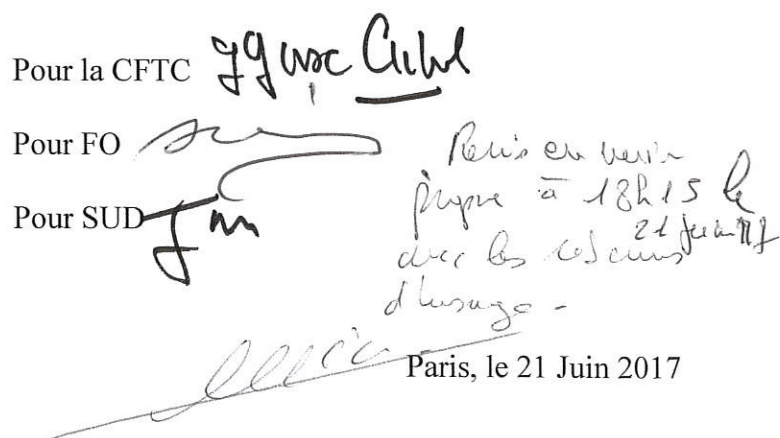 Pour la CFTC
Pour FO
Pour SUD
Remis en main
propre à 18h15 le
21 juin 17
avec les réserves
d'usage -
Paris, le 21 Juin 2017